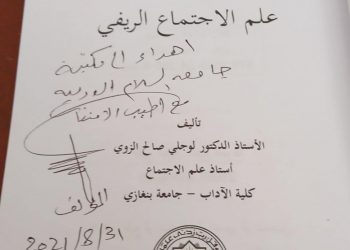 علم الاجتماع الريفي
اهداء الى مكتبة
جامعة السلام الدولية
مع اطيب الامنيات
تأليف
الأستاذ الدكتور لوجلي صالح الزوي
أستاذ علم الاجتماع
كلية الآداب – جامعة بنغازي
المؤلف
2021/8/31